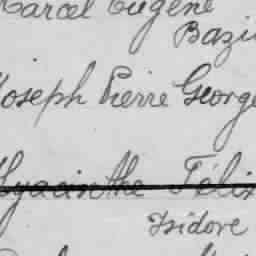 Marcel Eugène
Bazi
Joseph Pierre George
Hyacinthe Félix
Isidore